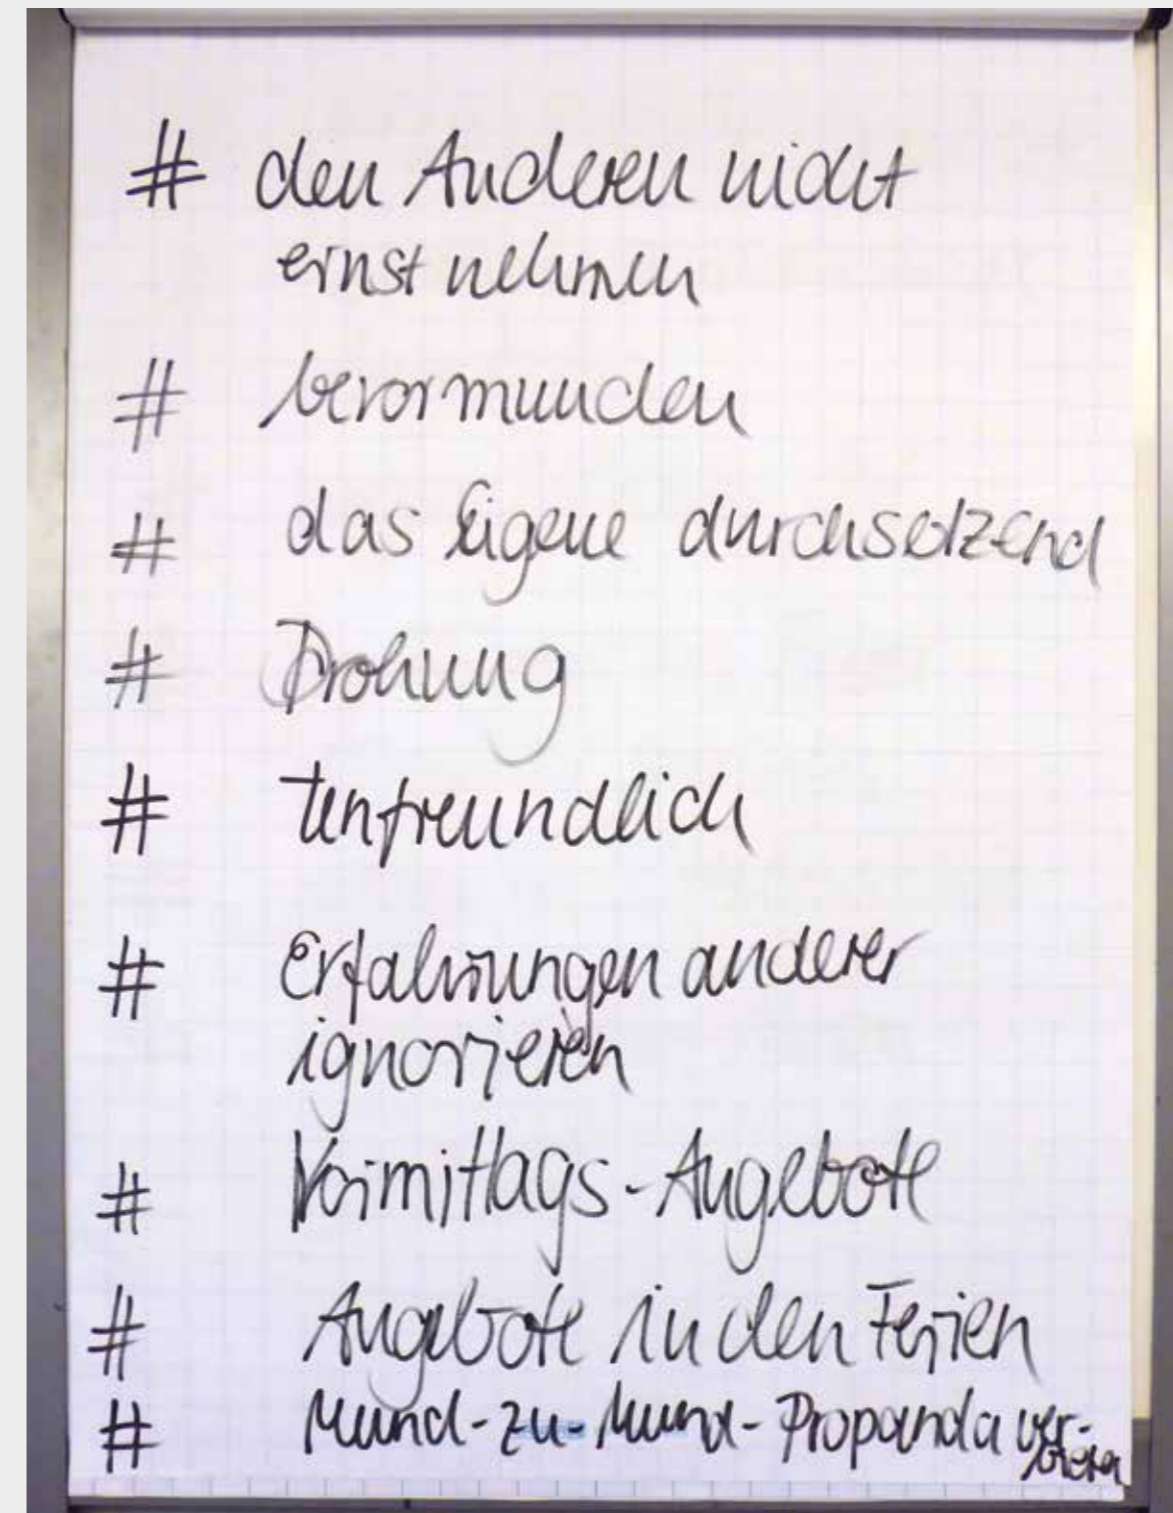 # den Anderen nicht
ernst nehmen
# bevormunden
# das Eigene durchsetzend
# Drohung
# Unfreundlich
# Erfahrungen anderer
ignorieren
# Vormittags-Angebote
# Angebote in den Ferien
# Mund-zu-Mund-Propanda ver-
bieten